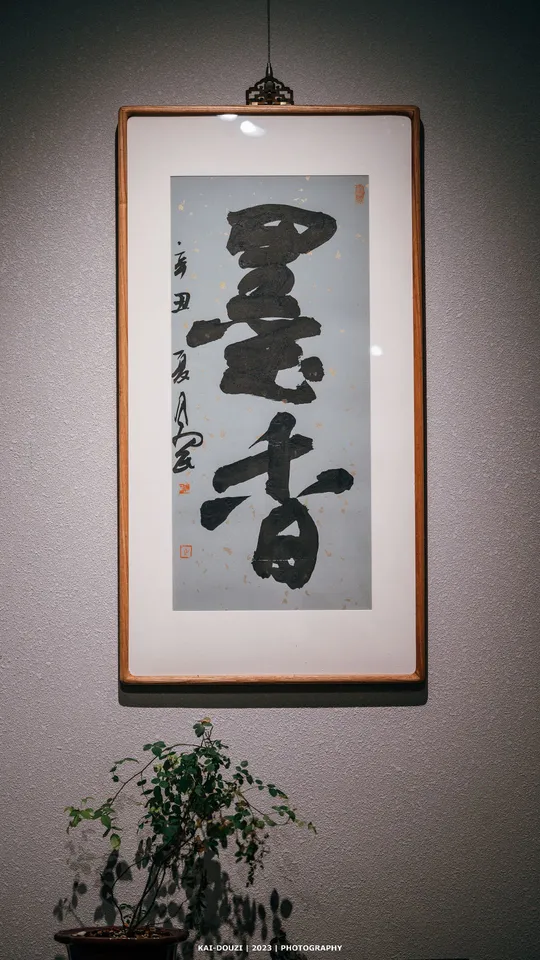 墨香
辛丑夏月
KAI-DOUZI | 2023 | PHOTOGRAPHY